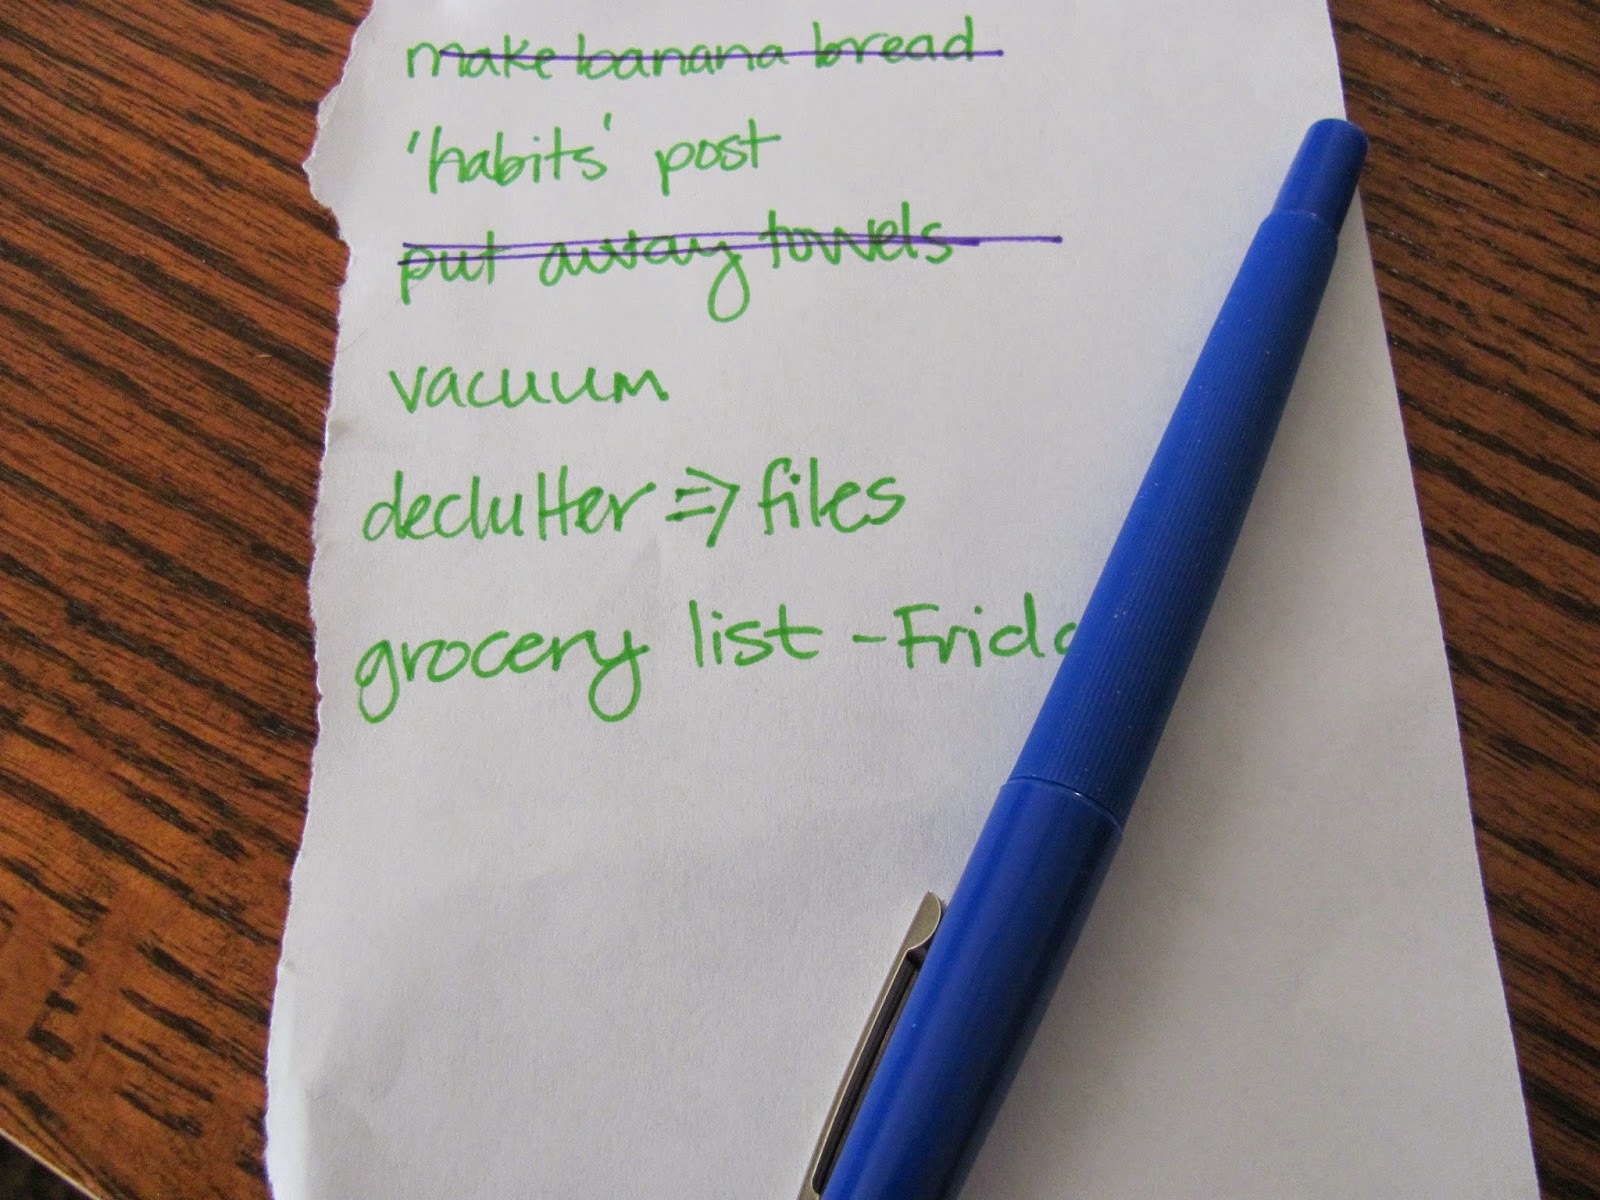 make banana bread
'habits' post
put away towels
vacuum
declutter ⇒ files
grocery list - Frida